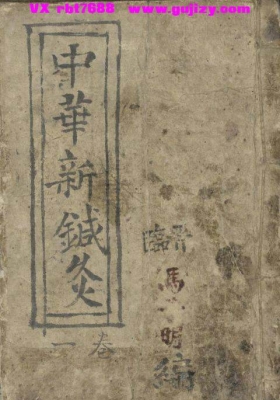 VX rbt7688  www.gujizy.com
中華新鍼灸
卷一
馮
明
編